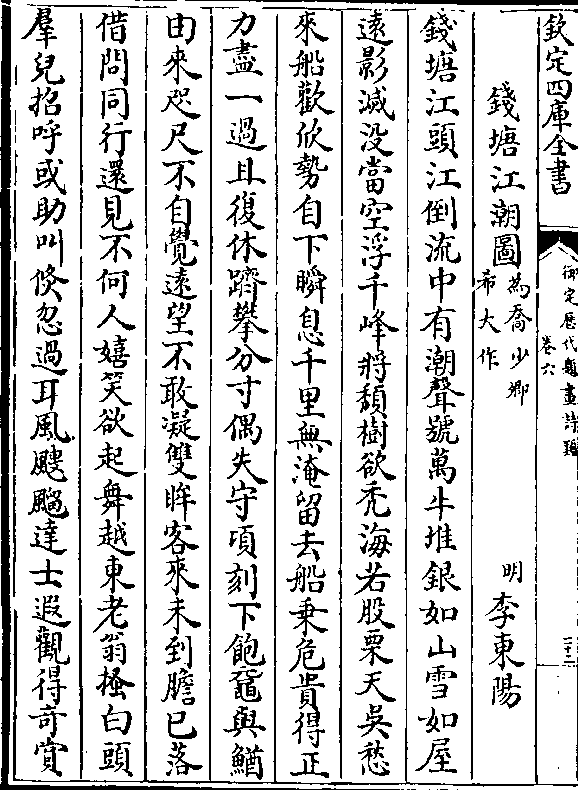 欽定四庫全書
御定歷代題畫詩類
卷六
二十二
錢塘江潮圖為喬少卿希大作 明 李東陽
錢塘江頭江倒流中有潮聲號萬牛堆銀如山雪如屋
遠影滅没當空浮千峰將頽樹欲禿海若股栗天吳愁
來船歡欣勢自下瞬息千里無淹留去船乗危貴得正
力盡一過且復休躋攀分寸偶失守項刻下飽黿與鰌
由來咫尺不自覺遠望不敢凝雙眸客來未到膽已落
借問同行還見不何人嬉笑欲起舞越東老翁搔白頭
羣兒招呼或助叫倐忽過耳風颼飀達士遐觀得奇賞